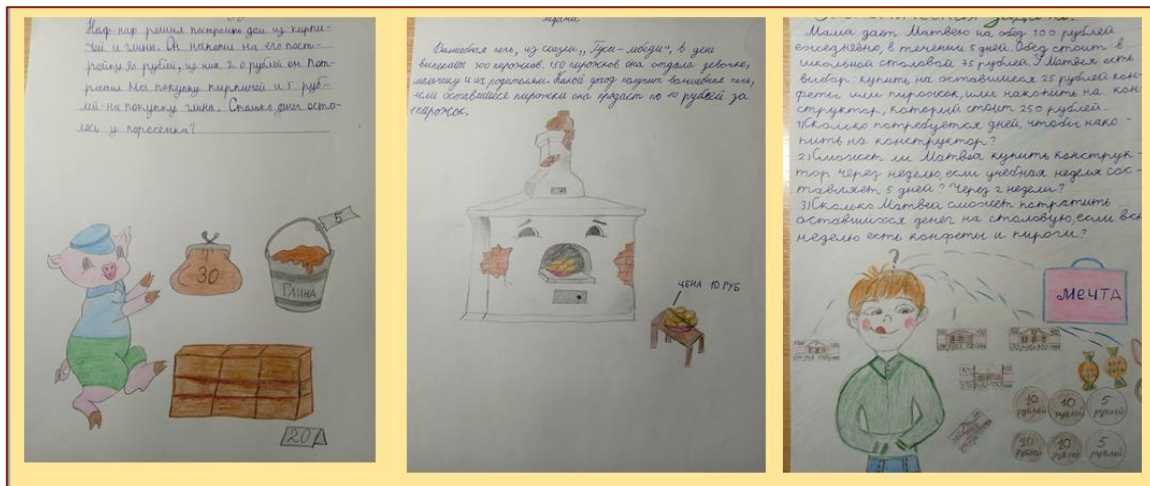 Наф-наф решил построить дом из кирпи-
чей и глины. Он накопил на его пост-
ройку 30 рублей, из них 20 рублей он пот-
ратил на покупку кирпичей и 5 руб-
лей на покупку глины. Сколько денег оста-
лось у поросёнка?
30
5
ГЛИНА
20
Волшебная печь, из сказки „Гуси-лебеди“, в день
выпекает 300 пирожков. 150 пирожков она отдала девочке,
мальчику и их родителям. Какой доход получит волшебная печь,
если оставшиеся пирожки она продаст по 10 рублей за
1 пирожок.
ЦЕНА 10 РУБ
Мама дает Матвею на обед 100 рублей
ежедневно, в течении 5 дней. Обед стоит в
школьной столовой 75 рублей. У Матвея есть
выбор: купить на оставшиеся 25 рублей кон-
феты или пирожок, или накопить на кон-
структор, который стоит 250 рублей.
1) Сколько потребуется дней, чтобы нако-
пить на конструктор?
2) Сможет ли Матвей купить конструк-
тор через неделю, если учебная неделя сос-
тавляет 5 дней? Через 2 недели?
3) Сколько Матвей сможет потратить
оставшихся денег на столовую, если всю
неделю есть конфеты и пироги?
?
МЕЧТА
100 100
100 100
10 рублей
10 рублей
5 рублей
10 рублей
10 рублей
5 рублей